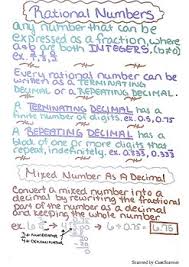 Rational Numbers
any number that can be
expressed as a fraction where
a & b are both INTEGERS. (b≠0)
ex.
Every rational number can be
written as a TERMINATING
DECIMAL or a REPEATING DECIMAL.
A TERMINATING DECIMAL has a
finite number of digits. ex. 0.5, 0.75
A REPEATING DECIMAL has a
block of one or more digits that
repeat, indefinitely. ex. 0.333, 0.333
Mixed Number As A Decimal
Convert a mixed number into a
decimal by rewriting the fractional
part of the number as a decimal
and keeping the whole number
→ 6 + 0.75 = 6.75
Scanned by CamScanner